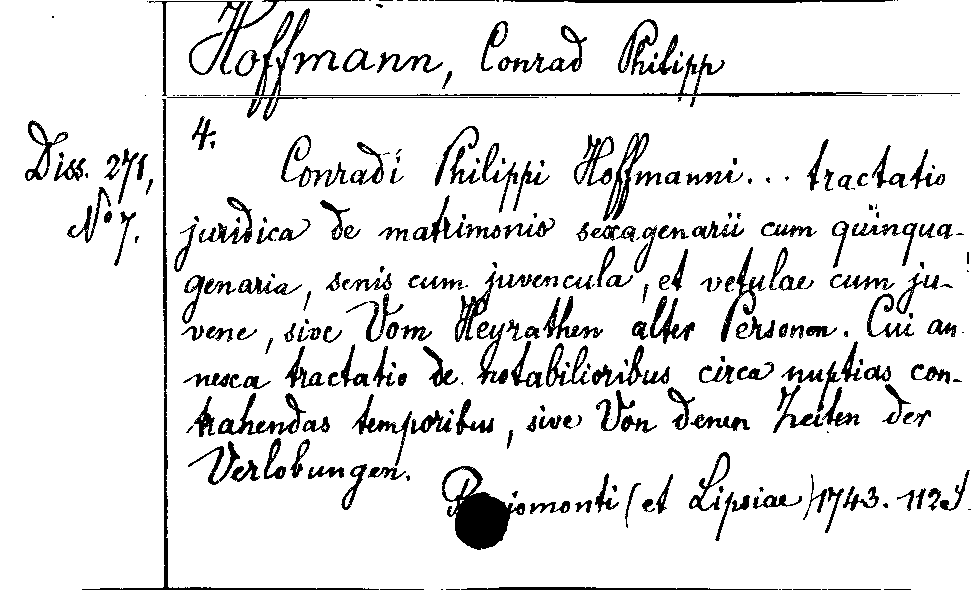 Hoffmann, Conrad Philipp
Diss. 271,
No 7.
4.
Conradi Philippi Hoffmanni... tractatio
juridica de matrimonio sexagenarii cum quinqua-
genaria, senis cum juvencula, et vetulae cum ju-
vene, sive Vom Heyrathen alter Personen. Cui an-
nexa tractatio de notabilioribus circa nuptias con-
trahendas temporibus, sive Von denen Zeiten der
Verlobungen.
(et Lipsiae) 1743. 112 S.